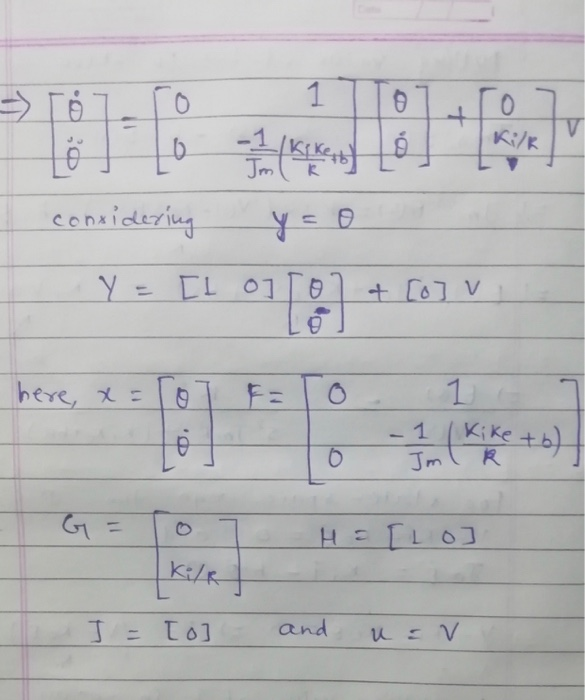 ⇒ [θ̇ ; θ̈] = [0 1 ; 0 -1/Jm (KiKe/R +b)] [θ ; θ̇] + [0 ; Ki/R] V
considering y = θ
Y = [1 0] [θ ; θ̇] + [0] V
here, x = [θ ; θ̇] F = [0 1 ; 0 -1/Jm (KiKe/R + b)]
G = [0 ; Ki/R] H = [1 0]
J = [0] and u = V